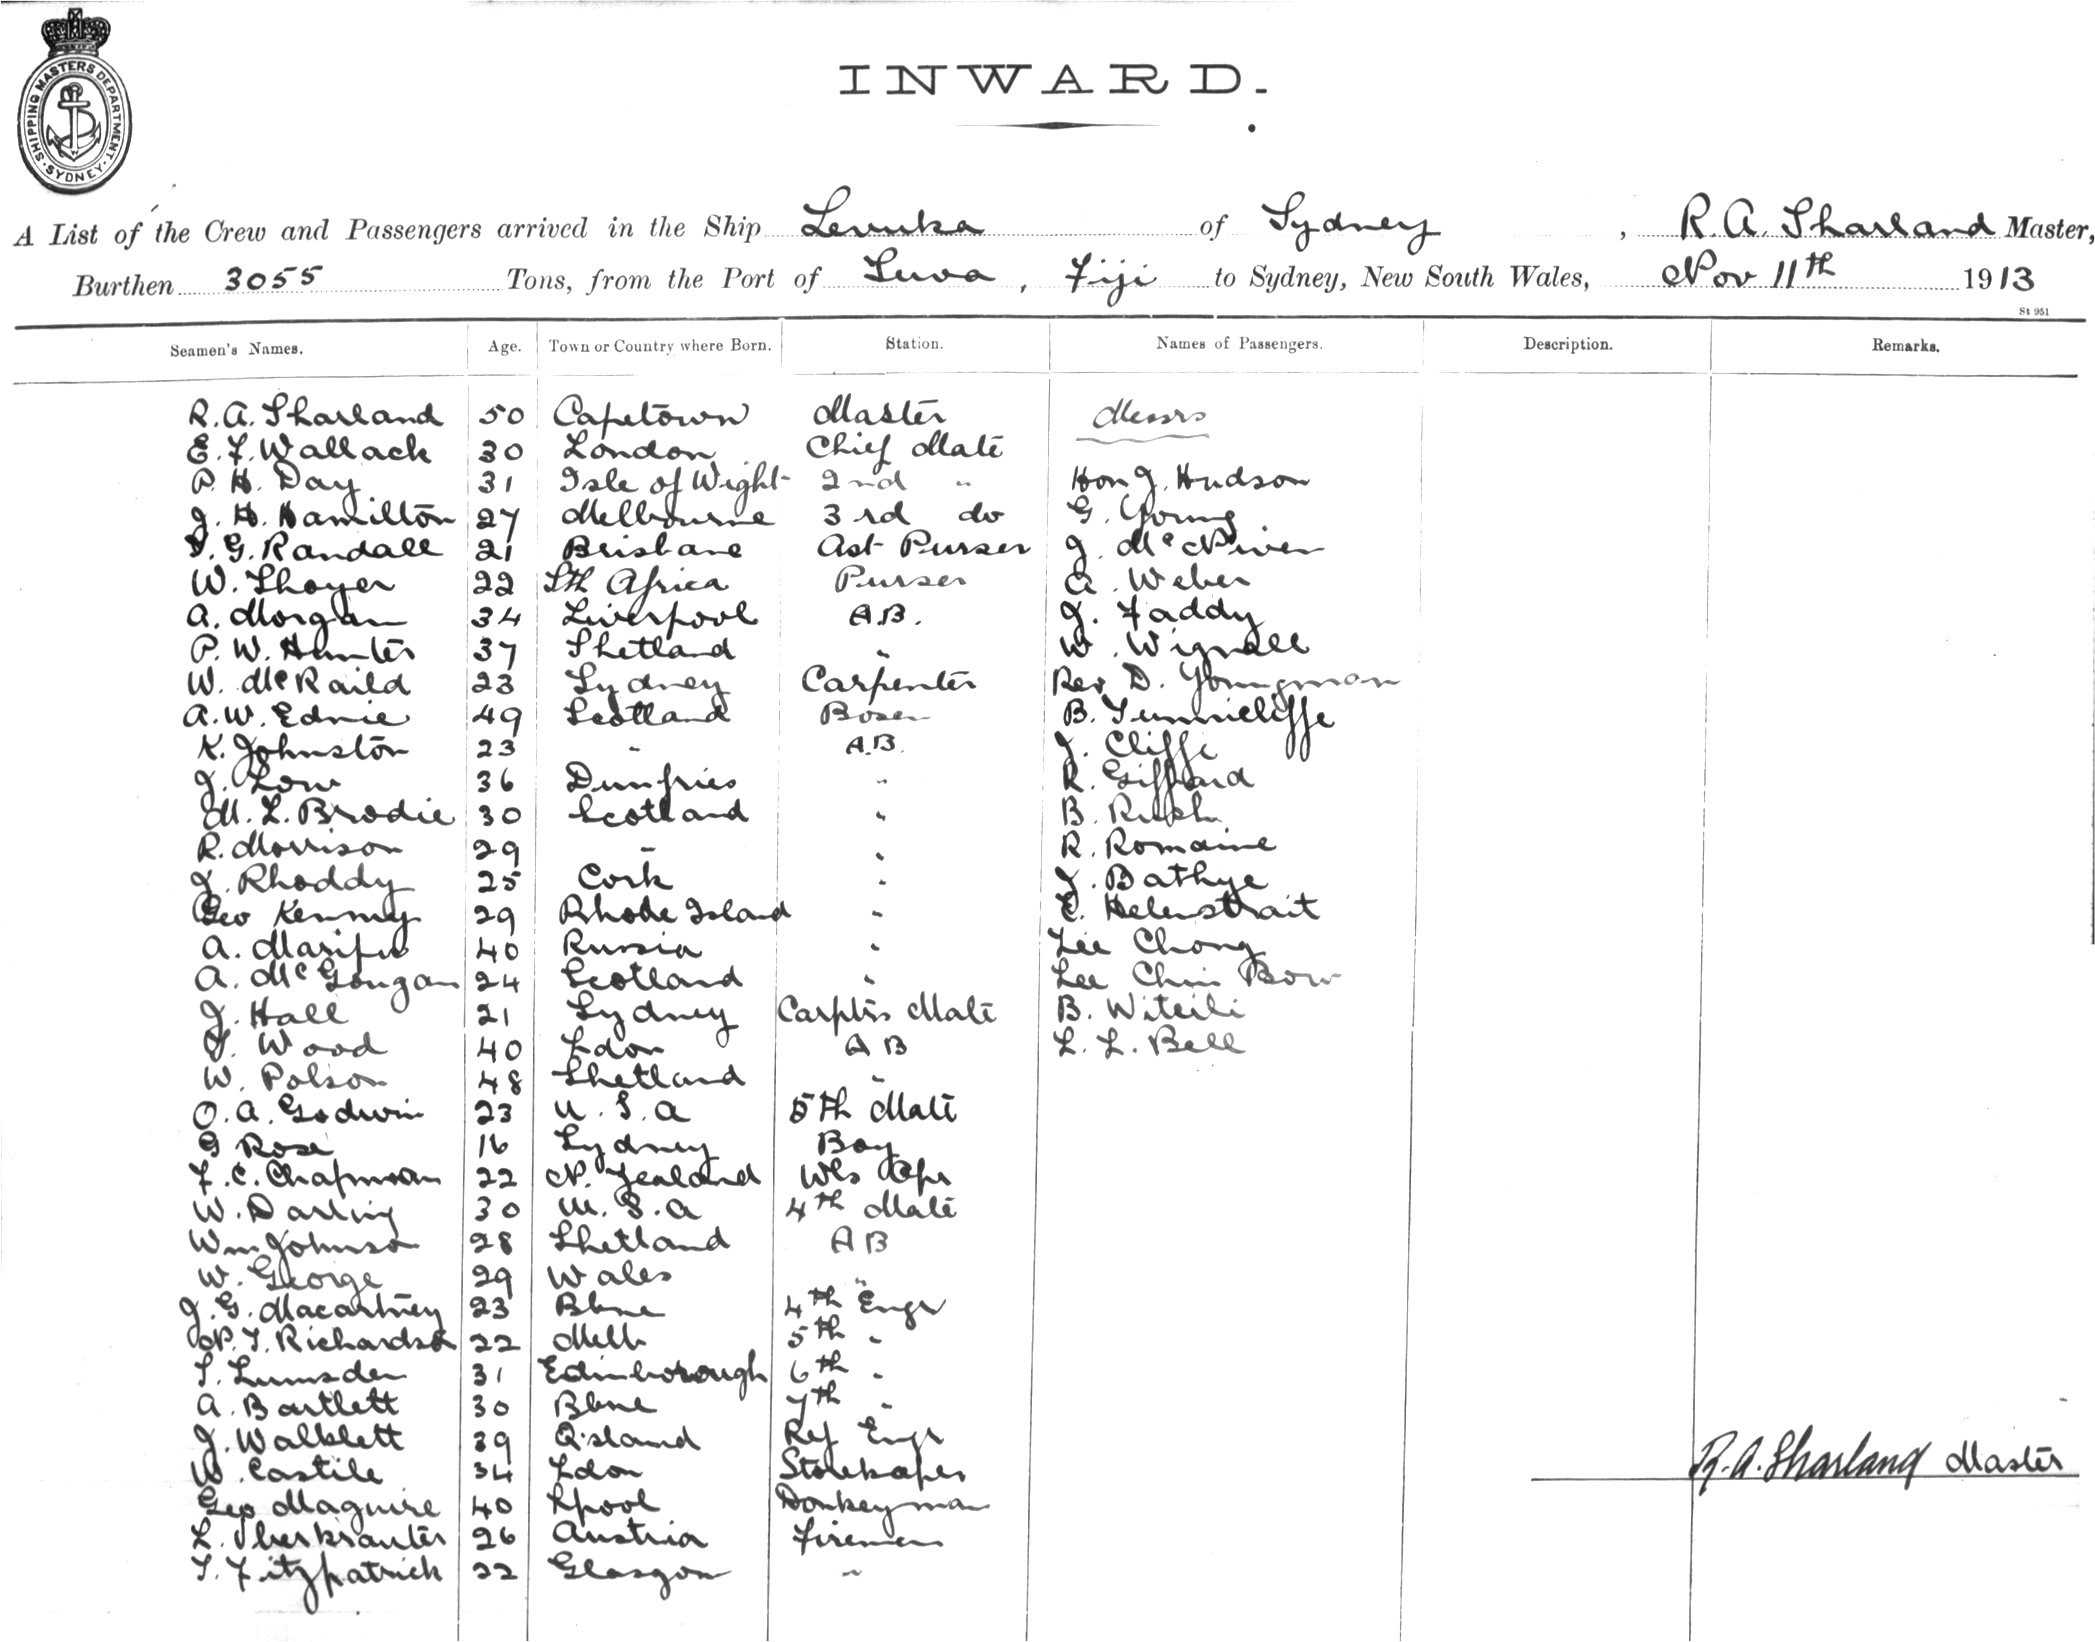 SHIPPING MASTERS DEPARTMENT. SYDNEY
INWARD.
A List of the Crew and Passengers arrived in the Ship Levuka of Sydney, R. A. Sharland Master,
Burthen 3055 Tons, from the Port of Suva, Fiji to Sydney, New South Wales, Nov 11th 1913
St 951
Seamen's Names. Age. Town or Country where Born. Station. Names of Passengers. Description. Remarks.
R. A. Sharland 50 Capetown Master Messrs
E. F. Wallack 30 London Chief Mate
P. H. Day 31 Isle of Wight 2nd " Hon J. Hudson
J. H. Hamilton 27 Melbourne 3rd do G. Young
G. Randall 21 Brisbane Ast Purser J. McNiven
W. Shoyer 22 Sth Africa Purser A. Weber
A. Morgan 34 Liverpool A.B. J. Faddy
P. W. Hunter 37 Shetland " W. Wignall
W. McRaild 23 Sydney Carpenter Rev D. Youngman
A. W. Ednie 49 Scotland Bosen B. Tunnicliffe
K. Johnston 23 " A.B. J. Cliffe
J. Low 36 Dumfries " R. Giffard
M. L. Brodie 30 Scotland " B.
R. Morrison 29 " " R. Romaine
J. Rhoddy 25 Cork " J. Bathye
Geo Kenny 29 Rhode Island " Helenstrait
A. 40 Russia " Lee Chong
A. McGougan 24 Scotland " Lee Chin Bow
J. Hall 21 Sydney Carptrs Mate B. Witeili
Wood 40 Ldon A B L. L. Bell
W. Polson 48 Shetland "
O. A. Godwin 23 U.S.A 5th Mate
G Rose 16 Sydney Boy
F. C. Chapman 22 N. Zealand Wls Opr
W. Darling 30 U.S.A 4th Mate
Wm Johnson 28 Shetland A B
W. George 29 Wales "
J. G. Macartney 23 Bbne 4th Engr
N. T. Richardson 22 Melb 5th "
S. Lumsden 31 Edinborough 6th "
A. Bartlett 30 Bbne 7th "
J. Walklett 39 Q'sland Ref Engr
W. Castile 34 Ldon Storekeeper R. A. Sharland Master
Geo Maguire 40 Lpool Donkeyman
L. Oberkranter 26 Austria Firemen
T. Fitzpatrick 22 Glasgow "